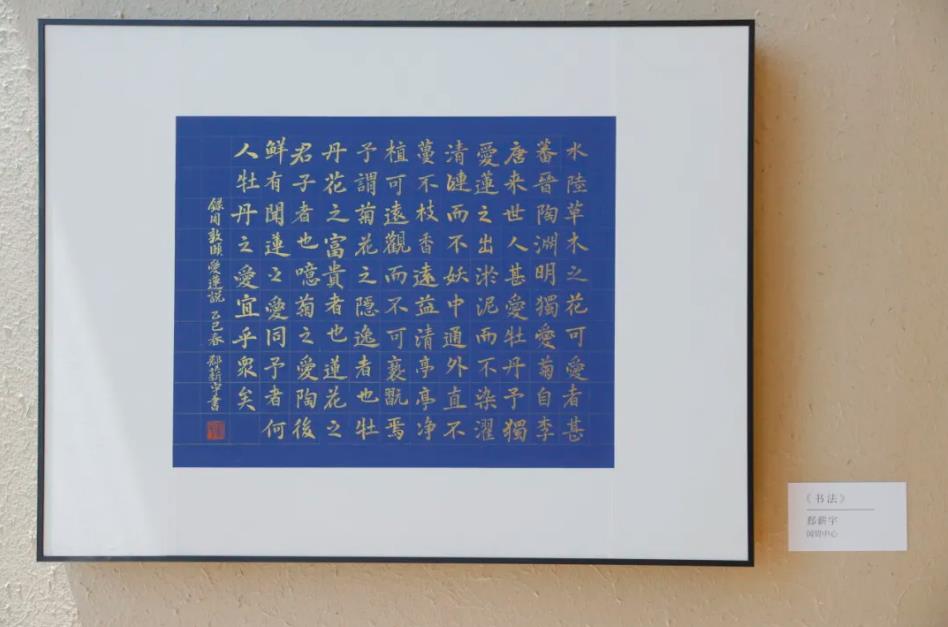 水陸草木之花可愛者甚
蕃晉陶渊明獨愛菊自李
唐来世人甚愛牡丹予獨
愛蓮之出淤泥而不染濯
清漣而不妖中通外直不
蔓不枝香遠益清亭亭净
植可遠觀而不可褻翫焉
予謂菊花之隠逸者也牡
丹花之富貴者也蓮花之
君子者也噫菊之愛陶後
鮮有聞蓮之愛同予者何
人牡丹之愛宜乎眾矣
錄周敦頤愛蓮説 乙巳春 鄢薪宇書
《书法》
鄢薪宇